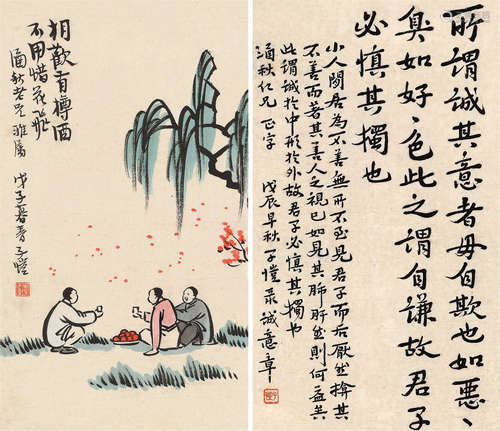 相歡有樽酒
不用惜花飛
涵秋老兄雅屬
戊子暮春子愷
所謂誠其意者毋自欺也如惡、
臭如好、色此之謂自謙故君子
必慎其獨也
小人閒居為不善無所不至見君子而后厭然揜其
不善而著其善人之視己如見其肺肝然則何益矣
此謂誠於中形於外故君子必慎其獨也
涵秋仁兄 正字 戊辰早秋 子愷录誠意章